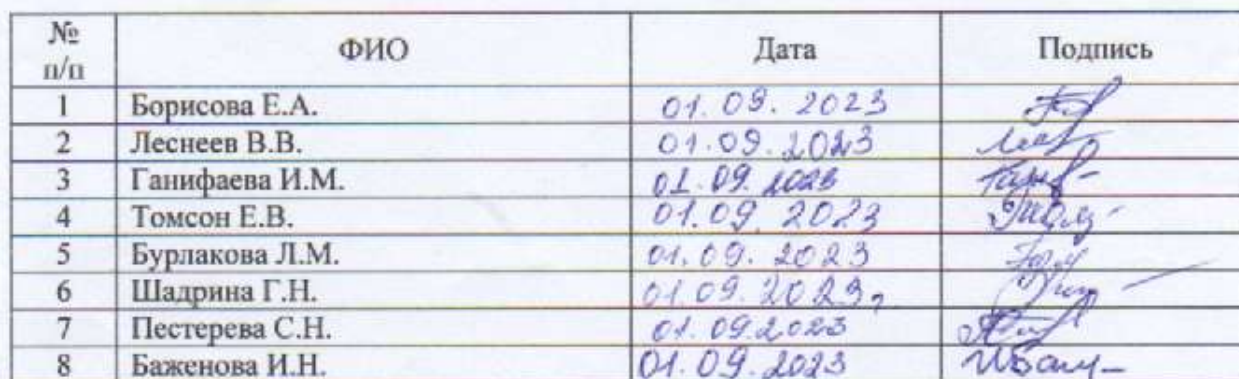 № п/п ФИО Дата Подпись
1 Борисова Е.А. 01.09.2023
2 Леснеев В.В. 01.09.2023
3 Ганифаева И.М. 01.09.2023
4 Томсон Е.В. 01.09.2023
5 Бурлакова Л.М. 01.09.2023
6 Шадрина Г.Н. 01.09.2023
7 Пестерева С.Н. 01.09.2023
8 Баженова И.Н. 01.09.2023